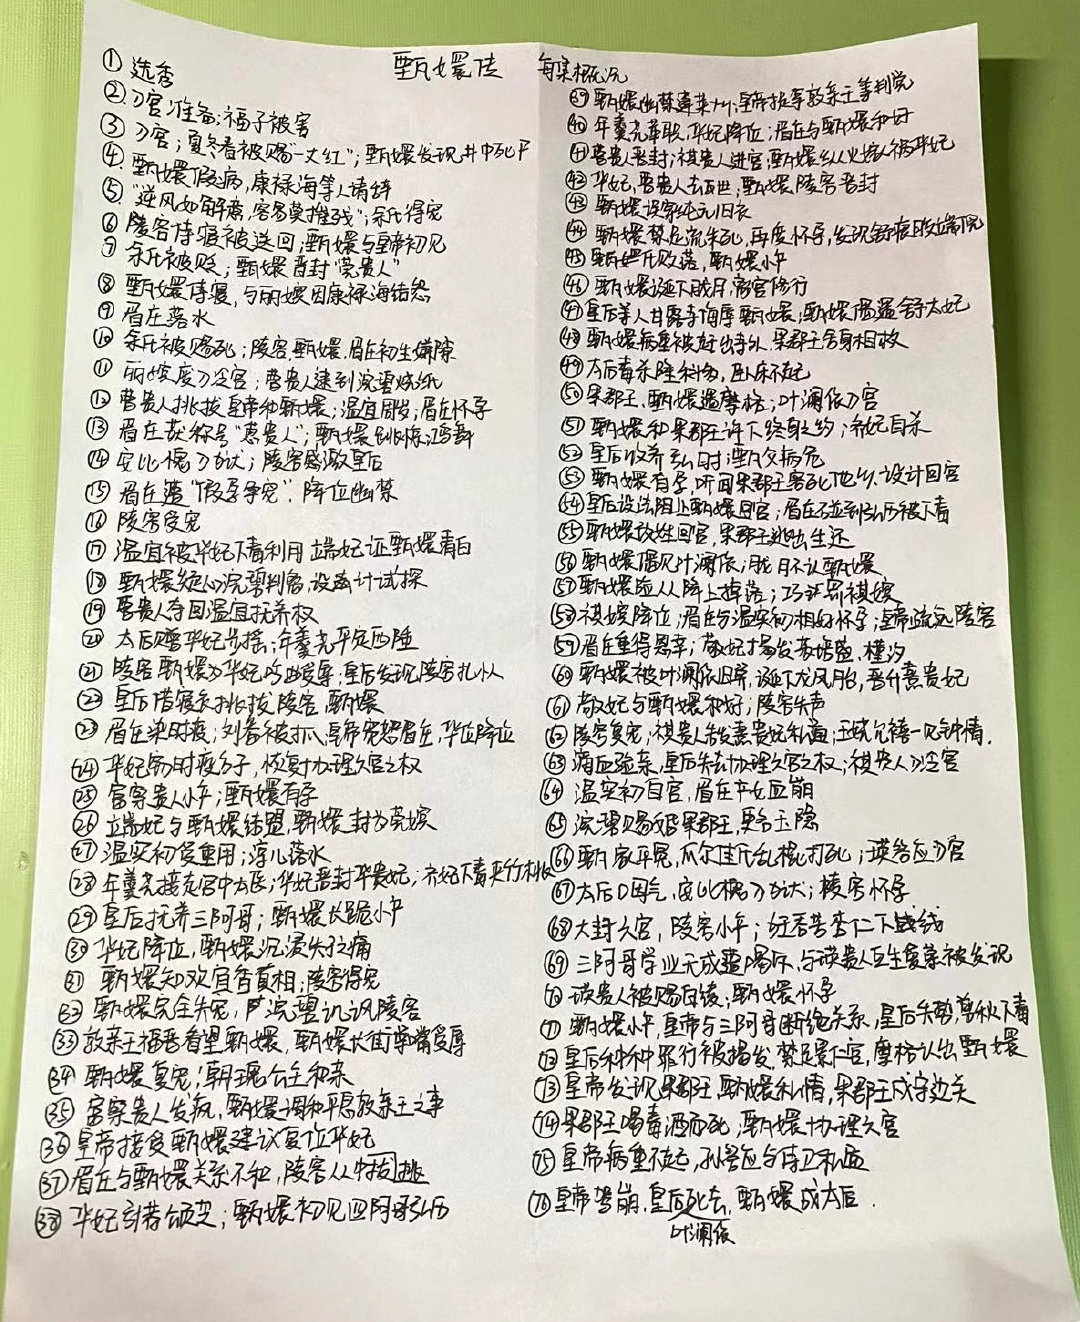 甄嬛传 每集概况
① 选秀
② 入宫准备;福子被害
③ 入宫;夏冬春被赐"一丈红";甄嬛发现井中死尸
④ 甄嬛假病,康禄海等人请辞
⑤ "逆风如解意,容易莫摧残";余氏得宠
⑥ 陵容侍寝被送回;甄嬛与皇帝初见
⑦ 余氏被贬;甄嬛晋封"莞贵人"
⑧ 甄嬛侍寝,与丽嫔因康禄海结怨
⑨ 眉庄落水
⑩ 余氏被赐死;陵容、甄嬛、眉庄初生嫌隙
⑪ 丽嫔废入冷宫;曹贵人逮到浣碧烧纸
⑫ 曹贵人挑拨皇帝和甄嬛;温宜周岁;眉庄怀孕
⑬ 眉庄获称号"惠贵人";甄嬛跳惊鸿舞
⑭ 安比槐入狱;陵容感激皇后
⑮ 眉庄遭"假孕争宠",降位幽禁
⑯ 陵容受宠
⑰ 温宜被华妃下毒利用,端妃证甄嬛清白
⑱ 甄嬛疑心浣碧利害,设画计试探
⑲ 曹贵人夺回温宜抚养权
⑳ 太后赠华妃步摇;年羹尧平定西陲
㉑ 陵容、甄嬛为华妃吟曲受辱;皇后发现陵容扎小人
㉒ 皇后借寝衣挑拨陵容、甄嬛
㉓ 眉庄染时疫;刘畚被抓,皇帝宽恕眉庄,华位降位
㉔ 华妃寄时疫方子,恢复协理六宫之权
㉕ 富察贵人小产;甄嬛有孕
㉖ 端妃与甄嬛结盟,甄嬛封为莞嫔
㉗ 温实初受重用;淳儿落水
㉘ 年羹尧接走宫中太医;华妃晋封华贵妃;齐妃下毒夹竹桃
㉙ 皇后抚养三阿哥;甄嬛长跪小产
㉚ 华妃降位,甄嬛沉浸失子之痛
㉛ 甄嬛知欢宜香真相;陵容得宠
㉜ 甄嬛完全失宠,浣碧讥讽陵容
㉝ 敦亲王福晋看望甄嬛,甄嬛长街掌嘴受辱
㉞ 甄嬛复宠;朝瑰公主和亲
㉟ 富察贵人发疯,甄嬛调和平息敦亲王之事
㊱ 皇帝接受甄嬛建议复位华妃
㊲ 眉庄与甄嬛关系不和,陵容从中挑拨
㊳ 华妃引荐颂芝;甄嬛初见四阿哥弘历
㊴ 甄嬛幽禁蓬莱州;皇帝报辱敦亲王等判党
㊵ 年羹尧革职,华妃降位;眉庄与甄嬛和好
㊶ 曹贵人晋封;祺贵人进宫;甄嬛纵火嫁祸华妃
㊷ 华妃、曹贵人去世;甄嬛、陵容晋封
㊸ 甄嬛误穿纯元旧衣
㊹ 甄嬛禁足流朱死,再度怀孕,发现舒痕胶端倪
㊺ 甄氏败落,甄嬛小产
㊻ 甄嬛诞下胧月,离宫修行
㊼ 皇后等人甘露寺侮辱甄嬛;甄嬛偶遇舒太妃
㊽ 甄嬛病重被赶出寺外,果郡王舍身相救
㊾ 太后毒杀隆科多,卧床不起
㊿ 果郡王、甄嬛遇摩格;叶澜依入宫
51 甄嬛和果郡王许下终身之约;齐妃自杀
52 皇后收养弘时;甄父病危
53 甄嬛有孕,听闻果郡王客死他乡,设计回宫
54 皇后设法阻止甄嬛回宫;眉庄碰到弘历被下毒
55 甄嬛改姓回宫,果郡王逃出生还
56 甄嬛偶见叶澜依;胧月不认甄嬛
57 甄嬛险从阶上掉落;巧计罚祺嫔
58 祺嫔降位;眉庄与温实初相好怀孕;皇帝疏远陵容
59 眉庄重得恩幸;敬妃揭发慕容世、槿汐
60 甄嬛被叶澜依旧帮,诞下龙凤胎,晋升熹贵妃
61 敬妃与甄嬛和好;陵容失声
62 陵容复宠,祺贵人告发熹贵妃私通;玉娆允禧一见钟情.
63 滴血验亲,皇后失去协理六宫之权;祺贵人入冷宫
64 温实初自宫,眉庄产女血崩
65 浣碧赐婚果郡王,更名玉隐
66 甄家平冤,瓜尔佳氏乱棍打死;瑛答应入宫
67 太后口困气,安比槐入狱;陵容怀孕
68 大封六宫,陵容小产;红杏苦杏仁下钱线
69 三阿哥学业无成整日喝坏,与瑛贵人互生爱慕被发现
70 瑛贵人被赐白绫;甄嬛怀孕
71 甄嬛小产,皇帝与三阿哥断绝关系,皇后失势,剪秋下毒
72 皇后种种罪行被揭发,禁足景仁宫,摩格认出甄嬛
73 皇帝发现果郡王、甄嬛私情,果郡王戍守边关
74 果郡王喝毒酒而死;甄嬛协理六宫
75 皇帝病重不起,孙答应与侍卫私通
76 皇帝驾崩,皇后死去,甄嬛成太后.
叶澜依